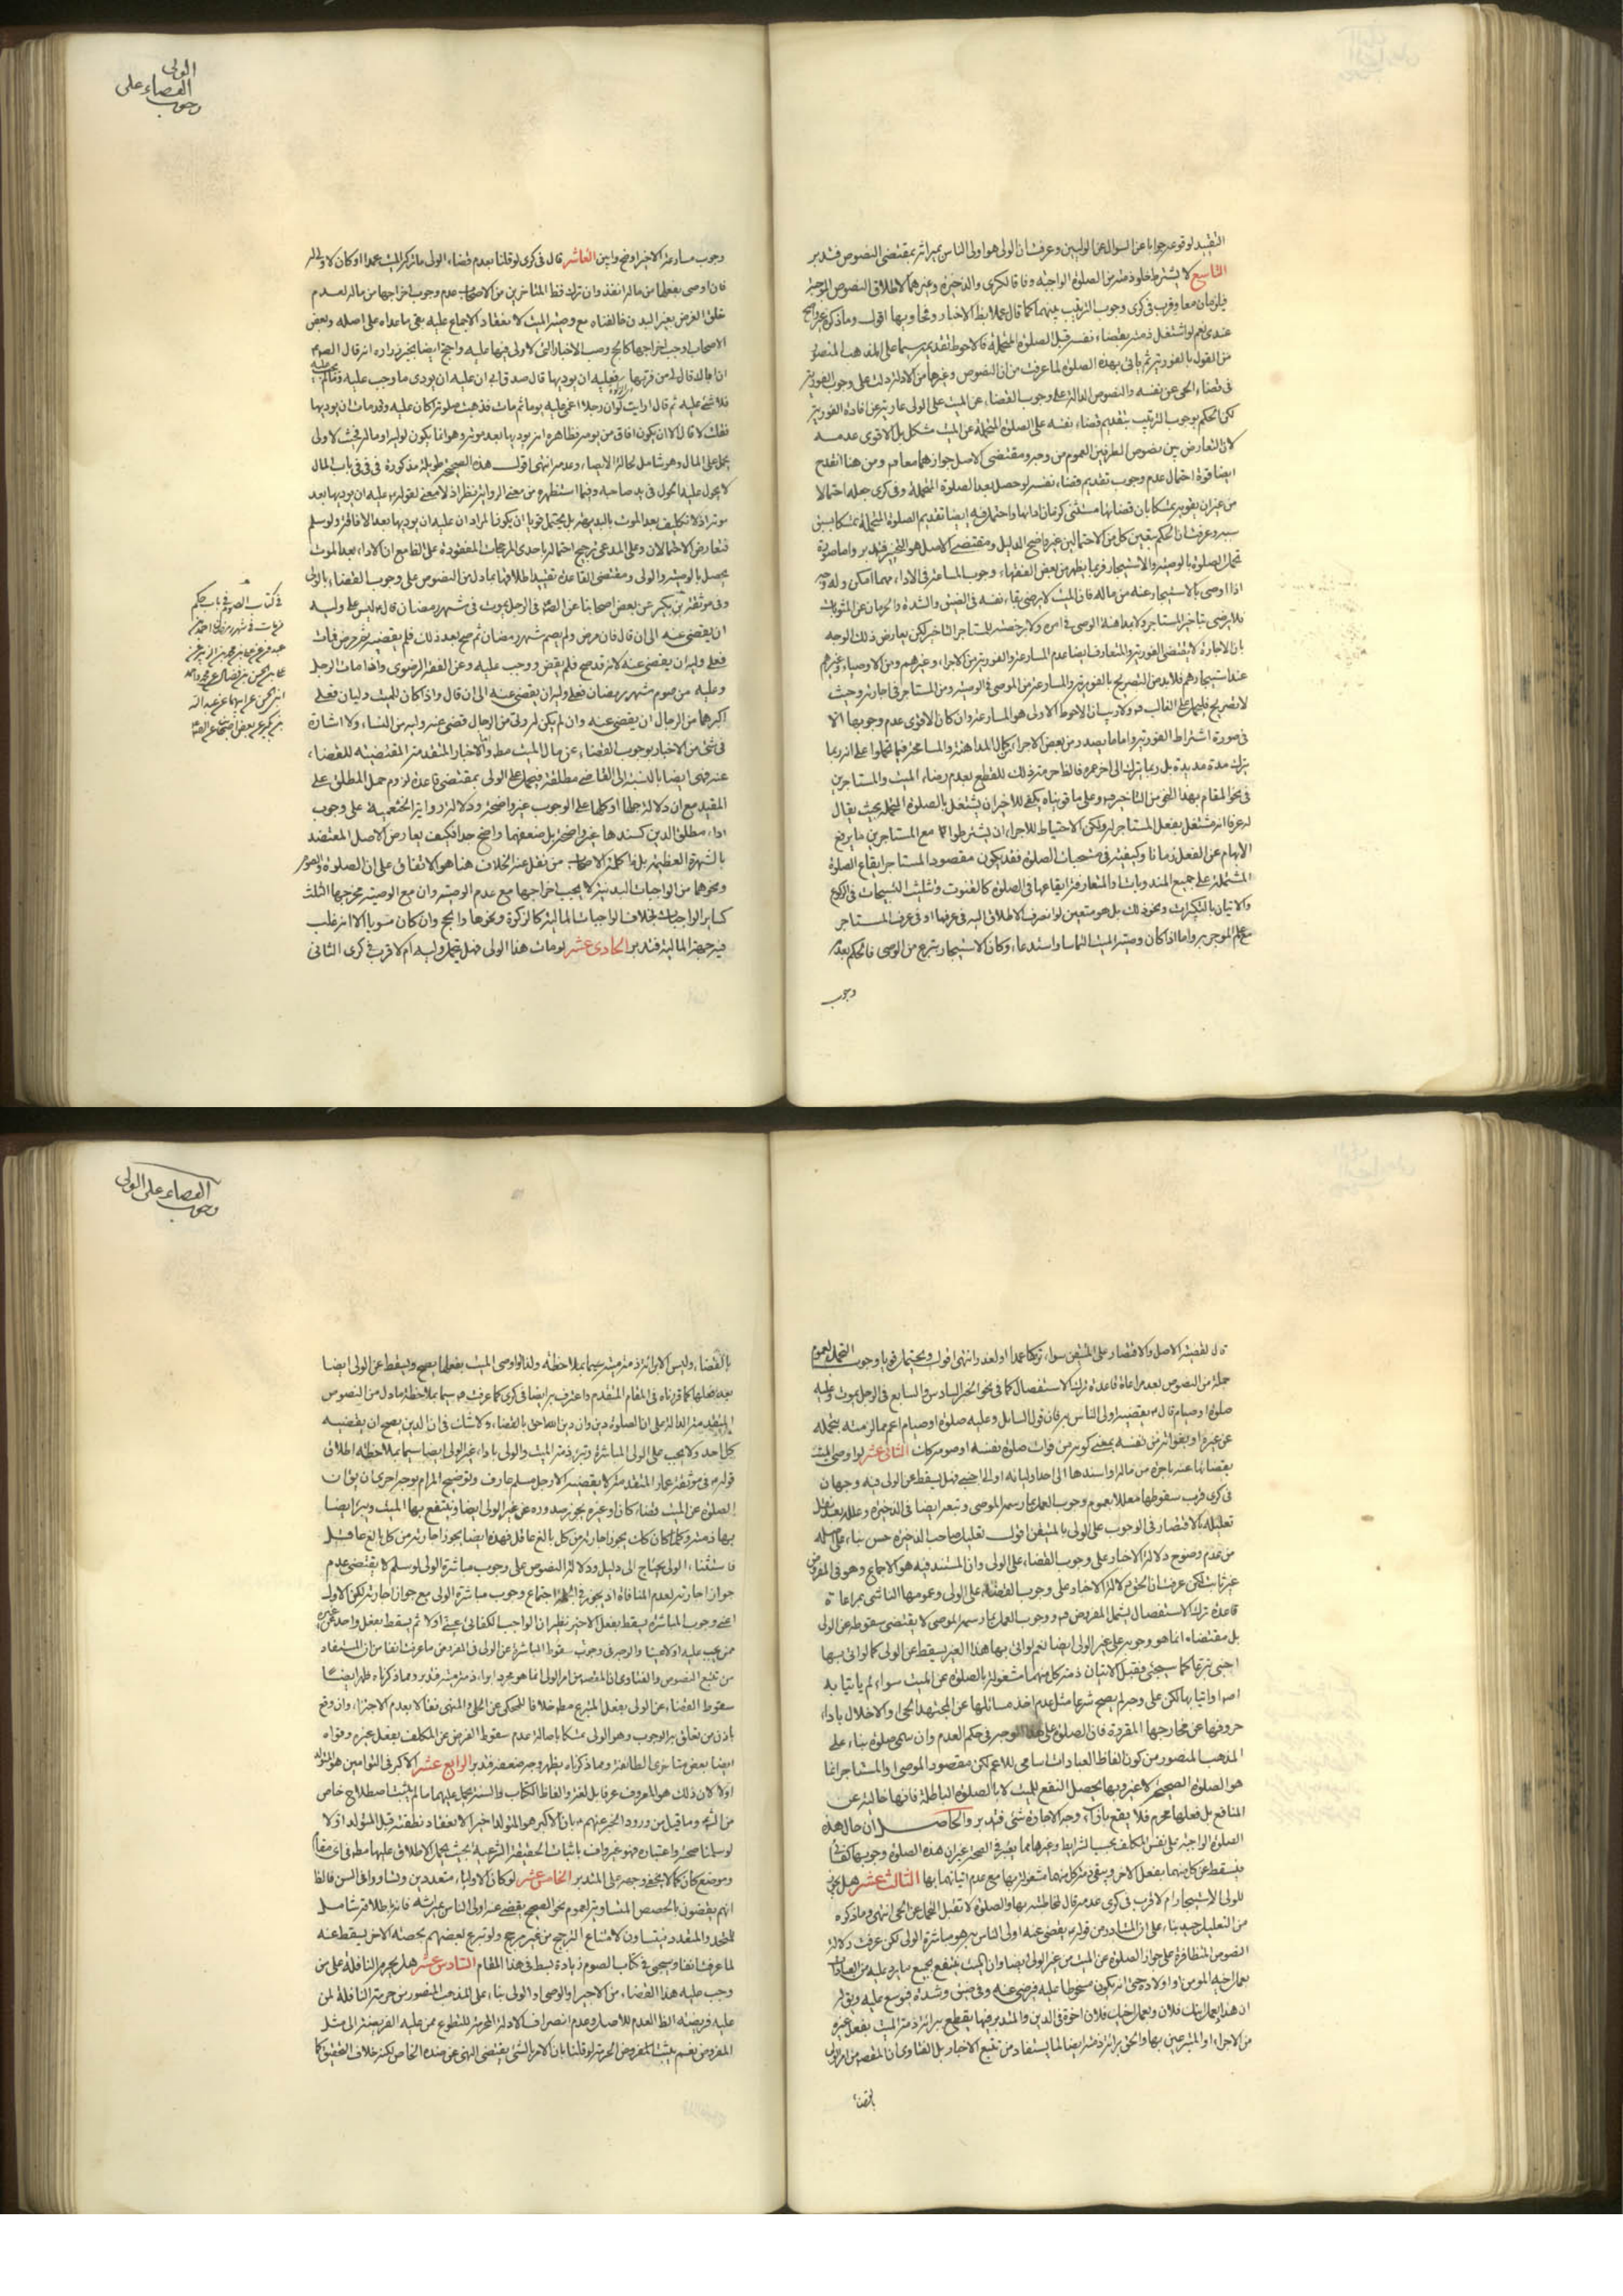 التقييد لوقوعه جوابا عن السوال عن الوليين وعرفت ان الولى هو اولى الناس بميراثه بمقتضى النصوص فتدبر
التاسع لا يشترط خلو ذمته من الصلوة الواجبة وفاقا لكرى والذخيرة وغيرهما لاطلاق النصوص الموجبة
فيلزمان معا وقرب فى كرى وجوب الترتيب بينهما كما قال عملا بظ الاخبار وفحاويها اقول وما ذكره غير واضح
عندى نعم لو اشتغل ذمته بقضاء نفسه قبل الصلوة المتحملة فالاحوط تقديمه سيما على المذهب المنصور
من القول بالفورية ثم ياتى بهذه الصلوة لما عرفت من ان النصوص وغيرها من الادلة دلت على وجوب الفورية
فى قضاء الحى عن نفسه والنصوص الدالة على وجوب القضاء عن الميت على الولى عارية عن افادة الفورية
لكن الحكم بوجوب الترتيب بتقديم قضاء نفسه على الصلوة المتحملة عن الميت مشكل بل الاقوى عدمه
لان التعارض بين نصوص الطرفين العموم من وجه ومقتضى الاصل جوازهما معا فيه ومن هنا انقدح
ايضا قوة احتمال عدم وجوب تقديم قضاء نفسه لو حصل بعد الصلوة المتحملة وفى كرى جعله احتمالا
من غير ان يقويه متمسكا بان قضائها مستثنى كزمان ادائها واحتمل فيه ايضا تقديم الصلوة المتحملة متمسكا بسبق
سببه وعرفت ان الحكم بتعين كل من الاحتمالين غير واضح الدليل ومقتضى الاصل هو التخيير فتدبر واما صورة
تحمل الصلوة بالوصية والاستيجار فربما يظهر من بعض الفقهاء وجوب المسارعة فى الاداء مهما امكن وله وجه
اذا اوصى بالاستيجار عنه من ماله فان الميت لا يرضى بقاء نفسه فى الضيق والشدة والحرمان عن المثوبات
فلا يرضى بتاخير المستاجر ولا بمداهنة الوصى فى امره ولا رخصته للمستاجر التاخير لكن يعارض ذلك الوجه
بان الاجارة لا يقتضى الفورية والمتعارف ايضا عدم المسارعة والفورية من الاجراء وغيرهم ومن الاوصياء وغيرهم
عند استيجارهم فلا بد من التصريح بالفورية والمسارعة من الموصى فى الوصية ومن المستاجر فى اجارته وحيث
لا تصريح فليحمل على الغالب فيه ولا ريب ان الاحوط الاولى هو المسارعة وان كان الاقوى عدم وجوبها الا
فى صورة اشتراط الفورية واما ما يصدر من بعض الاجراء بكمال المداهنة والمسامحة فيما تحملوا على انه ربما
يترك مدة مديدة بل ربما يترك الى اخر عمره فالظ حرمته ذلك للقطع بعدم رضاء الميت والمستاجرين
فى نحو المقام بهذا النحو من التاخير فيه وعلى ما قويناه يكفى للاخير ان يشتغل بالصلوة المتحملة بحيث يقال
له عرفا انه مشتغل بفعل المستاجر له ولكن الاحتياط للاجراء ان يشترطوا كما مع المستاجرين ما يرفع
الابهام عن الفعل زمانا وكيفيته فى مستحبات الصلوة فقد يكون مقصود المستاجر ايقاع الصلوة
المشتملة على جميع المندوبات والمتعارفة ايقاعها فى الصلوة كالقنوت وتثليث التسبيحات فى الركوع
والاتيان بالتكبيرات ونحو ذلك بل هو متعين لو انصرف الاطلاق اليه فى عرفها او فى عرف المستاجر
مع علم الموجر به واما اذا كان وصية الميت التماسا واستدعاء وكان الاستيجار بتبرع من الوصى فالحكم بعدم
وجوب
الولى
القضاء على
وجوب
وجوب مسارعة الاخير اوضح وابين العاشر قال فى كرى لو قلنا بعدم قضاء الولى ما تركه الميت عمدا او كان لا ولى له
فان اوصى بفعلها من ماله انفذ وان ترك فظ المتاخرين من الاصحاب عدم وجوب اخراجها من ماله لعدم
تعلق الفرض بغير البدن خالفناه مع وصية الميت لانعقاد الاجماع عليه بقى ما عداه على اصله وبعض
الاصحاب اوجب اخراجها كالحج وصب الاخبار التى لا ولى فيها عليه واحتج ايضا بخبر زرارة انه قال الصم
ان اباك قال لى من فر بها فعليه ان يوديها قال صدق ابى ان عليه ان يودى ما وجب عليه وما لم يجب عليه
فلا شئ عليه ثم قال ارايت لو ان رجلا اغمى عليه يوما ثم مات فذهبت صلوته اكان عليه وقد مات ان يوديها
فقلت لا قال الا ان يكون افاق من يومه فظاهره انه يوديها بعد موته وهو انما يكون لوليه او ماله فحيث لا ولى
يحمل على المال وهو شامل لحالة الايصاء وعدمه انتهى اقول هذه الصحيحة طويلة مذكورة فى فى باب المال
لا يحول عليه الحول فى يد صاحبه وفيما استظهره من معنى الرواية نظر اذ لا معنى لقوله عليه ان يوديها بعد
موته اذ لا تكليف بعد الموت بالبديهة بل يحتمل قويا ان يكون المراد ان عليه ان يوديها بعد الافاقة ولو سلم
فتعارض الاحتمالان وعلى المدعى ترجيح احتماله باحدى المرجحات المفقودة على القاطع ان الاداء بعد الموت
يحصل بالوصية والولى ومقتضى القاعدة تقييد اطلاقها بما دل من النصوص على وجوب القضاء بالولى
وفى موثقة ابن بكير عن بعض اصحابنا عن الصم فى الرجل يموت فى شهر رمضان قال ليس على وليه
ان يقضى عنه الى ان قال فان مرض ولم يصم شهر رمضان ثم صح بعد ذلك فلم يقضه ثم مرض فمات
فعلى وليه ان يقضى عنه لانه قد صح فلم يقض ووجب عليه وعن الفقه الرضوى واذا مات الرجل
وعليه من صوم شهر رمضان فعلى وليه ان يقضى عنه الى ان قال واذا كان للميت وليان فعلى
اكبرهما من الرجال ان يقضى عنه وان لم يكن له ولى من الرجال قضى عنه وليه من النساء ولا اشارة
فى شئ من الاخبار بوجوب القضاء عن مال الميت مط واما الاخبار المتقدمة المقتضية للقضاء
عنه فهى ايضا بالنسبة الى القاضى مطلقة فيحمل على الولى بمقتضى قاعدة لزوم حمل المطلق على
المقيد مع ان دلالة جلها او كلها على الوجوب غير واضحة ودلالة رواية الخثعمية على وجوب
اداء مطلق الدين كسندها غير واضحة بل ضعفهما واضح جدا فكيف يعارض الاصل المعتضد
بالشهرة العظيمة بل ظ كلمة الاصحاب من نقل عنه الخلاف هنا هو الاتفاق على ان الصلوة والصوم
ونحوهما من الواجبات البدنية لا يجب اخراجها مع عدم الوصية وان مع الوصية مخرجها الثلث
كساير الواجبات بخلاف الواجبات المالية كالزكوة ونحوها والحج وان كان مشوبا الا انه غلب
فيه جهة المالية فتدبر الحادى عشر لو مات هذا الولى فهل يتحمل وليه ام لا قرب فى كرى الثانى
فى كتاب الصوم فى باب حكم
عن بعض اصحابنا عن الصم
قال لقضية الاصل والاقتصار على المتيقن سواء تركها عمدا او لعذر انتهى اقول ويحتمل قويا وجوب التحمل لعموم
جملة من النصوص بعد مراعاة قاعدة ترك الاستفصال كما فى نحو الخبر السادس والسابع فى الرجل يموت وعليه
صلوة او صيام قال يقضيه اولى الناس به فان قول السايل وعليه صلوة او صيام اعم مما لزمته بتحمله
عن غيره او بفواته من نفسه بمعنى كونه من فوات صلوة نفسه او صومه كان الثانى عشر لو اوصى الميت
بقضائها عنه باجرة من ماله او اسندها الى احد اوليائه او الى اجنبى فهل يسقط عن الولى فيه وجهان
فى كرى قرب سقوطها معللا بعموم وجوب العمل بما رسمه الموصى وتبعه ايضا فى الذخيرة وعلله بعد نقل
تعليله بالاقتصار فى الوجوب على الولى بالمتيقن اقول تعليل صاحب الذخيرة حسن بناء على اصله
من عدم وضوح دلالة الاخبار على وجوب القضاء على الولى وان المستند فيه هو الاجماع وهو فى المفروض
غير ثابت لكن عرفت ان الحق دلالة الاخبار على وجوب القضاء على الولى وعمومها الناشى بمراعاة
قاعدة ترك الاستفصال يشمل المفروض فيه ووجوب العمل بما رسمه الموصى لا يقتضى سقوطه عن الولى
بل مقتضاه انما هو وجوبه على غير الولى ايضا نعم لو اتى بها هذا الغير يسقط عن الولى كما لو اتى بها
اجنبى تبرعا كما سيجئ فقبل الاتيان ذمة كل منهما مشغولة بالصلوة عن الميت سواء لم ياتيا به
اصلا او اتيا بها لكن على وجه لم يصح شرعا مثل عدم اخذ مسائلها عن المجتهد الحى او الاخلال باداء
حروفها عن مخارجها المقررة فان الصلوة على هذا الوجه فى حكم العدم وان سمى صلوة بناء على
المذهب المنصور من كون الفاظ العبادات اسامى للاعم لكن مقصود الموصى او المستاجر انما
هو الصلوة الصحيحة لا غير وبها يحصل النفع للميت لا بالصلوة الباطلة فانها خالية عن
المنافع بل فعلها محرم فلا يقع بازاء وجه الاجارة شئ فتدبر والحاصل ان حال هذه
الصلوة الواجبة على نفس المكلف بحسب الشرايط وغيرها مما يعتبر فى الصحة غير ان هذه الصلوة وجوبها كفائى
فيسقط عن كل منهما بفعل الاخر ويبقى ذمة كل منهما مشغولة بها مع عدم اتيانهما بها الثالث عشر هل يجوز
للولى الاستيجار ام لا قرب فى كرى عدمه قال لمخاطبته بها والصلوة لا تقبل التحمل عن الحى انتهى وما ذكره
من التعليل جيد بناء على ان المتبادر من قوله يقضى عنه اولى الناس به هو مباشرة الولى لكن عرفت دلالة
النصوص المتظافرة على جواز الصلوة عن الميت من غير الولى ايضا وان الميت ينتفع بجميع ما يرد عليه من العبادات
بعمل اخيه المومن او اولاده حتى انه يكون مسخوطا عليه فيرضى عنه وفى ضيق وشدة فيوسع عليه ويق له
ان هذا بعمل ابنك فلان وبعمل اخيك فلان اخوة فى الدين والمتدبر فيها يقطع ببراءة ذمة الميت بفعل غيره
من الاجراء او المتبرعين بها والحق براءة ذمته ايضا لما يستفاد من تتبع الاخبار بل الفتاوى ان المقصد من امر الولى
بالقضاء
القضاء على الولى
وجوب
بالقضاء وليس الا براءة ذمة ميته سيما بملاحظة ولذا لو اوصى الميت بفعلها يصح ويسقط عن الولى ايضا
بعد فعلها كما قررناه فى المقام المتقدم واعترف به ايضا فى كرى كما عرفت فيه سيما بملاحظة ما دل من النصوص
المتقدمة الدالة على ان الصلوة دين وان دين الله احق بالقضاء ولا شك فى ان الدين يصح ان يقضيه
كل احد ولا يجب على الولى المباشرة وتبرء ذمة الميت والولى باداء غير الولى ايضا سيما بملاحظة اطلاق
قوله فى موثقة عمار المتقدمة لا يقضيه الا رجل مسلم عارف وتوضيح المرام بوجه اخر بان يق ان
الصلوة عن الميت قضاء كان او غيره يجوز صدوره عن غير الولى ايضا وينتفع بها الميت ويبرء ايضا
بها ذمته وكلما كان كك يجوز اجارته من كل بالغ عاقل فهذه ايضا يجوز اجارته من كل بالغ عاقل
فاستثناء الولى يحتاج الى دليل ودلالة النصوص على وجوب مباشرة الولى لو سلم لا يقتضى عدم
جواز اجارته لعدم المنافاة اذ يجوز فى الجملة اجتماع وجوب مباشرة الولى مع جواز اجارته لكن الاول
اعنى وجوب المباشرة يسقط بفعل الاخير نظير ان الواجب الكفائى عينى اولا ثم يسقط بفعل واحد عن غيره
ممن يجب عليه اولا عينا والوجه فى وجوب سقوط المباشرة عن الولى فى المفروض ما عرفت انفا من ان المستفاد
من تتبع النصوص والفتاوى ان المقصد من امر الولى انما هو مجرد ابراء ذمة ميته فتدبر ومما ذكرناه ظهر ايضا
سقوط القضاء عن الولى بفعل المتبرع مط خلافا للمحكى عن الحلى والمنتهى فقالا بعدم الاجزاء وان وقع
باذن من تعلق به الوجوب وهو الولى تمسكا باصالة عدم سقوط الفرض عن المكلف بفعل غيره وقواه
ايضا بعض متاخرى الطائفة ومما ذكرناه يظهر وجه ضعفه فتدبر الرابع عشر الاكبر فى التوامين هو المتولد
اولا لان ذلك هو المعروف عرفا بل لغة والفاظ الكتاب والسنة يحمل عليهما ما لم يثبت اصطلاح خاص
من الشرع وما قيل من ورود الخبر عنهم بان الاكبر هو المتولد اخيرا لانعقاد نطفته قبل المتولد اولا
لو سلمنا صحته واعتباره فهو غير واف باثبات الحقيقة الشرعية بحيث يحمل الاطلاق عليها مط فى اى مقام
وموضع كان كما لا يخفى وجهه على المتدبر الخامس عشر لو كان الاولياء متعددين وتساووا فى السن فالظ
انهم يقضون بالحصص المتساوية لعموم نحو الصحيح يقضى عنه اولى الناس بميراثه فانه باطلاقه شامل
للمتحد والمتعدد فيتساون لامتناع الترجيح من غير مرجح ولو تبرع بعضهم بحصة الاخر يسقط عنه
لما عرفت انفا وسيجئ فى كتاب الصوم زيادة بسط فى هذا المقام السادس عشر هل يحرم النافلة على من
وجب عليه هذا القضاء من الاجير او الوصى او الولى بناء على المذهب المنصور من حرمة النافلة لمن
عليه فريضة الظ العدم للاصل وعدم انصراف الادلة المحرمة للتطوع ممن عليه الفريضة الى مثل
المفروض نعم يثبت المفروض الحرمة لو قلنا بان الامر بالشئ يقتضى النهى عن ضده الخاص لكنه خلاف التحقيق كما